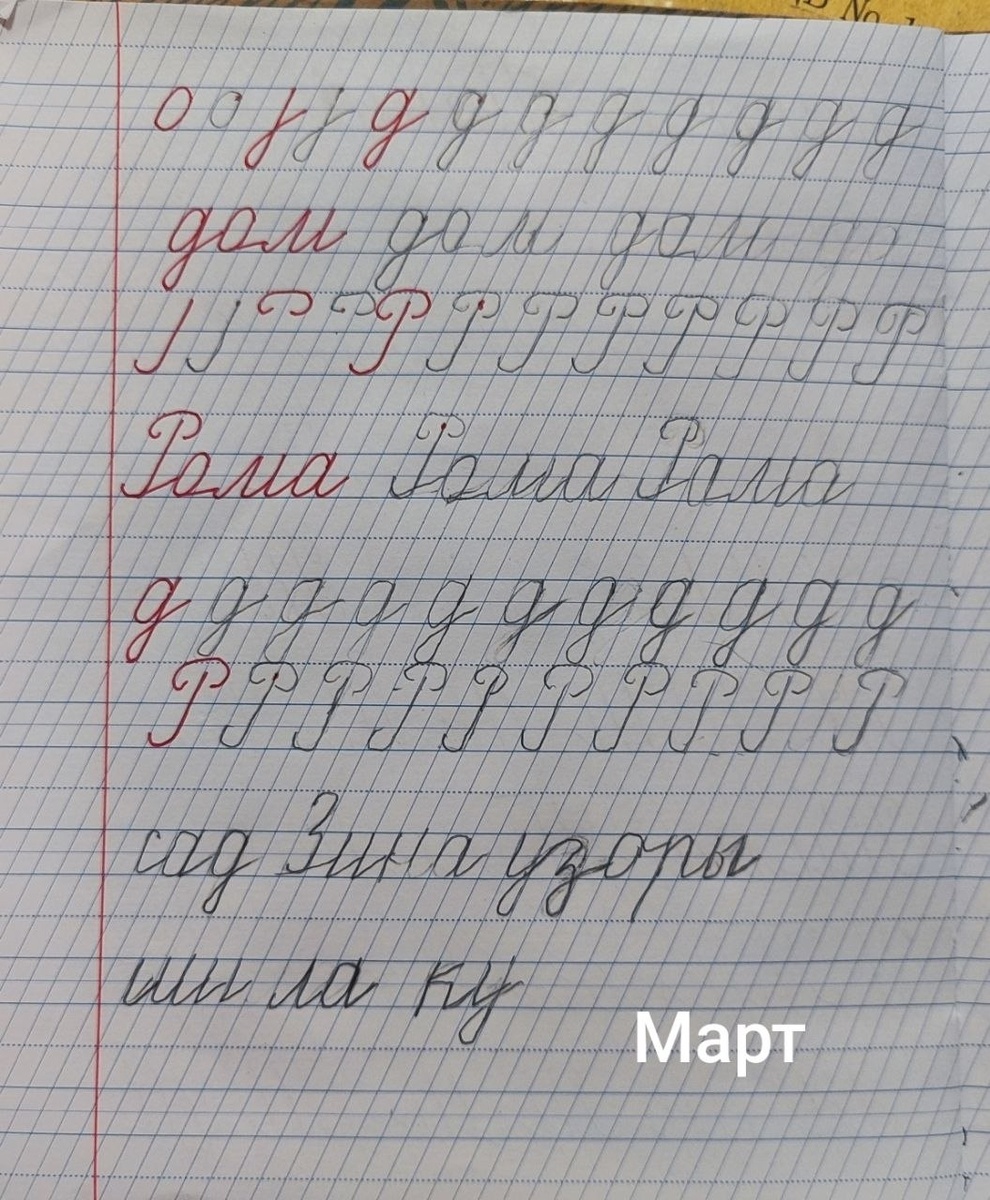 о о д д д д д д д д
дом дом дом
Р Р Р Р Р Р Р Р
Рома Рома Рома
д д д д д д д д д д д
Р Р Р Р Р Р Р Р Р Р
сад Зина узоры
ши ла ку
Март